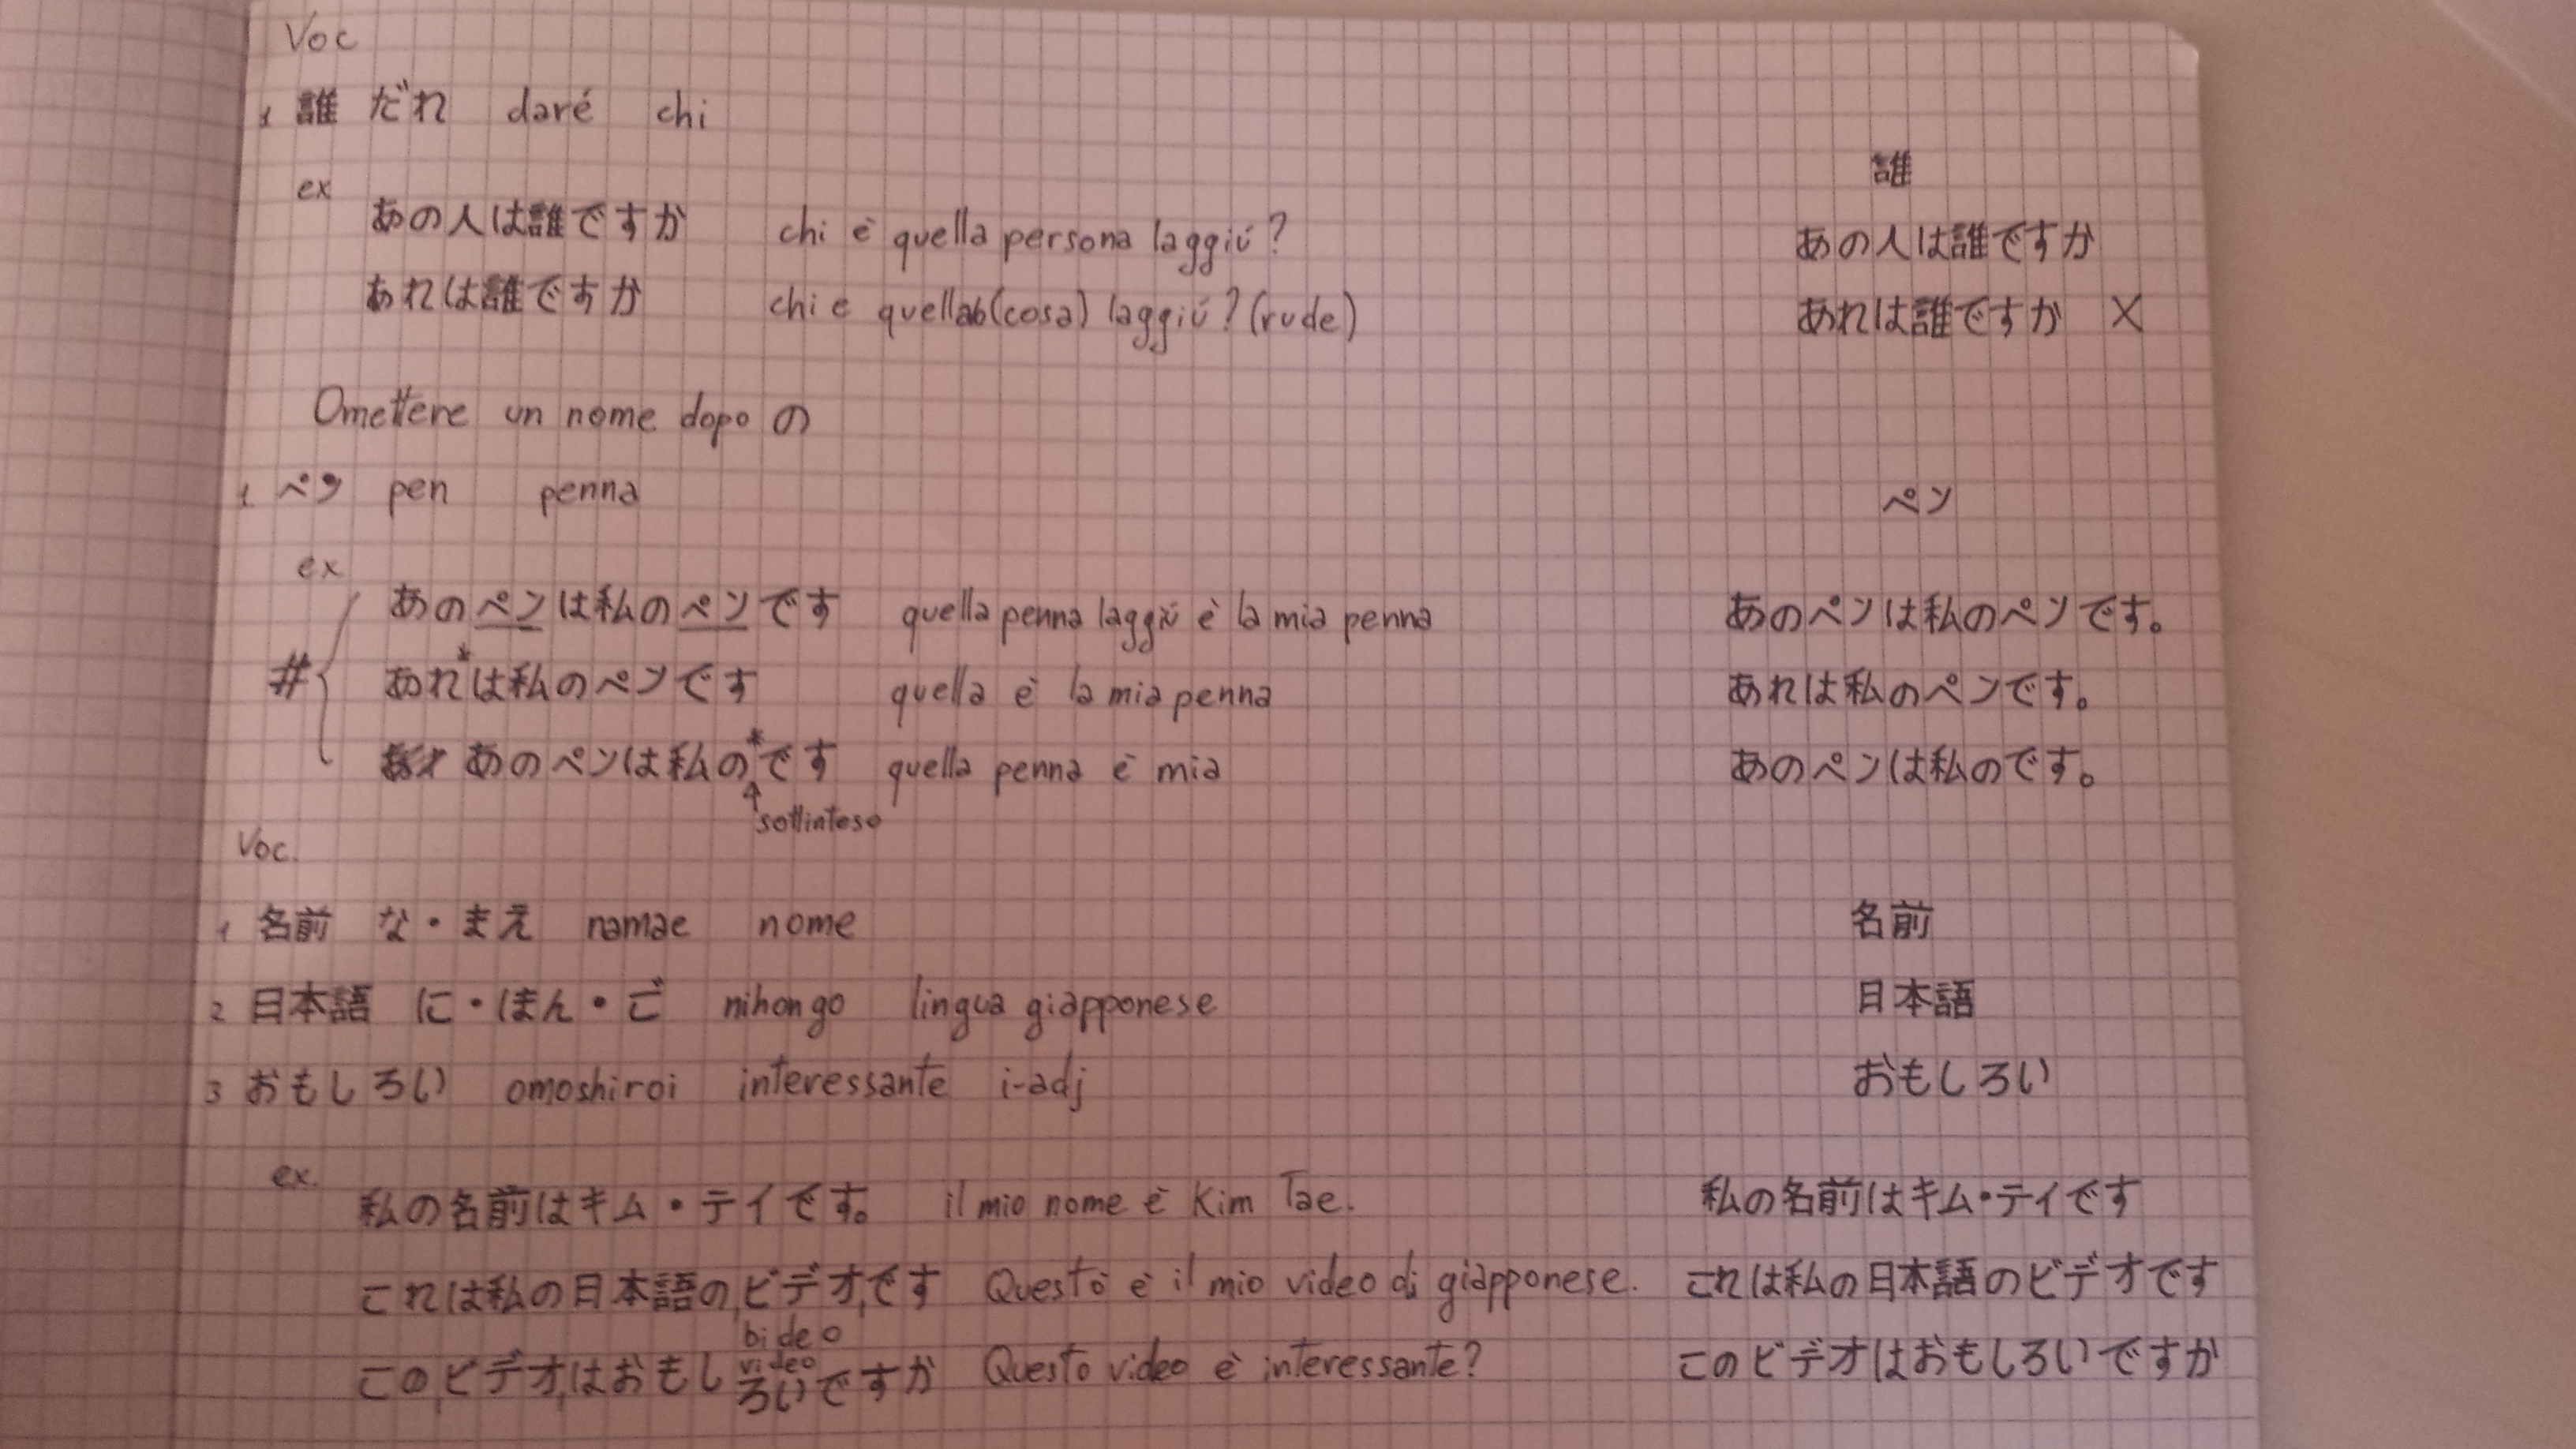 Voc
1 誰 だれ daré chi
誰
ex
あの人は誰ですか chi è quella persona laggiú? あの人は誰ですか
あれは誰ですか chi e quellab(cosa) laggiú? (rude) あれは誰ですか X
Omettere un nome dopo の
1 ペン pen penna ペン
ex
あのペンは私のペンです quella penna laggiú è la mia penna あのペンは私のペンです。
# あれ*は私のペンです quella è la mia penna あれは私のペンです。
あのペンは私の*です quella penna è mia あのペンは私のです。
↑ sottinteso
Voc.
1 名前 な・まえ namae nome 名前
2 日本語 に・ほん・ご nihongo lingua giapponese 日本語
3 おもしろい omoshiroi interessante i-adj おもしろい
ex.
私の名前はキム・テイです。 il mio nome è Kim Tae. 私の名前はキム・テイです
これは私の日本語のビデオです Questo è il mio video di giapponese. これは私の日本語のビデオです
bideo
video
このビデオはおもしろいですか Questo video è interessante? このビデオはおもしろいですか